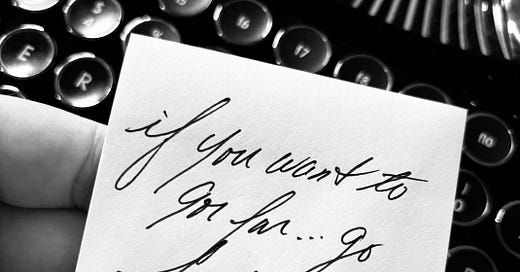 $
4
E
R
16
17
18
no
if you want to
go far... go